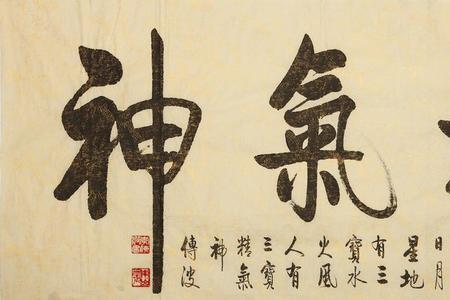 氣神
日月
星地
有三
寶水
火風
人有
三寶
精氣
神
傳